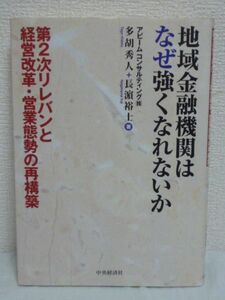 地域金融機関は
なぜ強くなれないか
アビームコンサルティング㈱
多胡秀人+長濱裕士 著
第2次リレバンと
経営改革・営業態勢の再構築
中央経済社